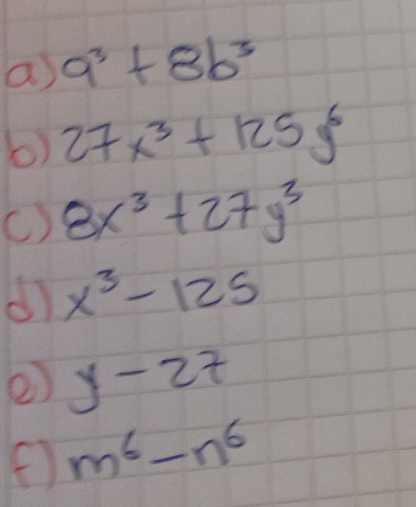 a) a³ + 8b³
b) 27x³ + 125y⁶
c) 8x³ + 27y³
d) x³ - 125
e) y - 27
f) m⁶ - n⁶